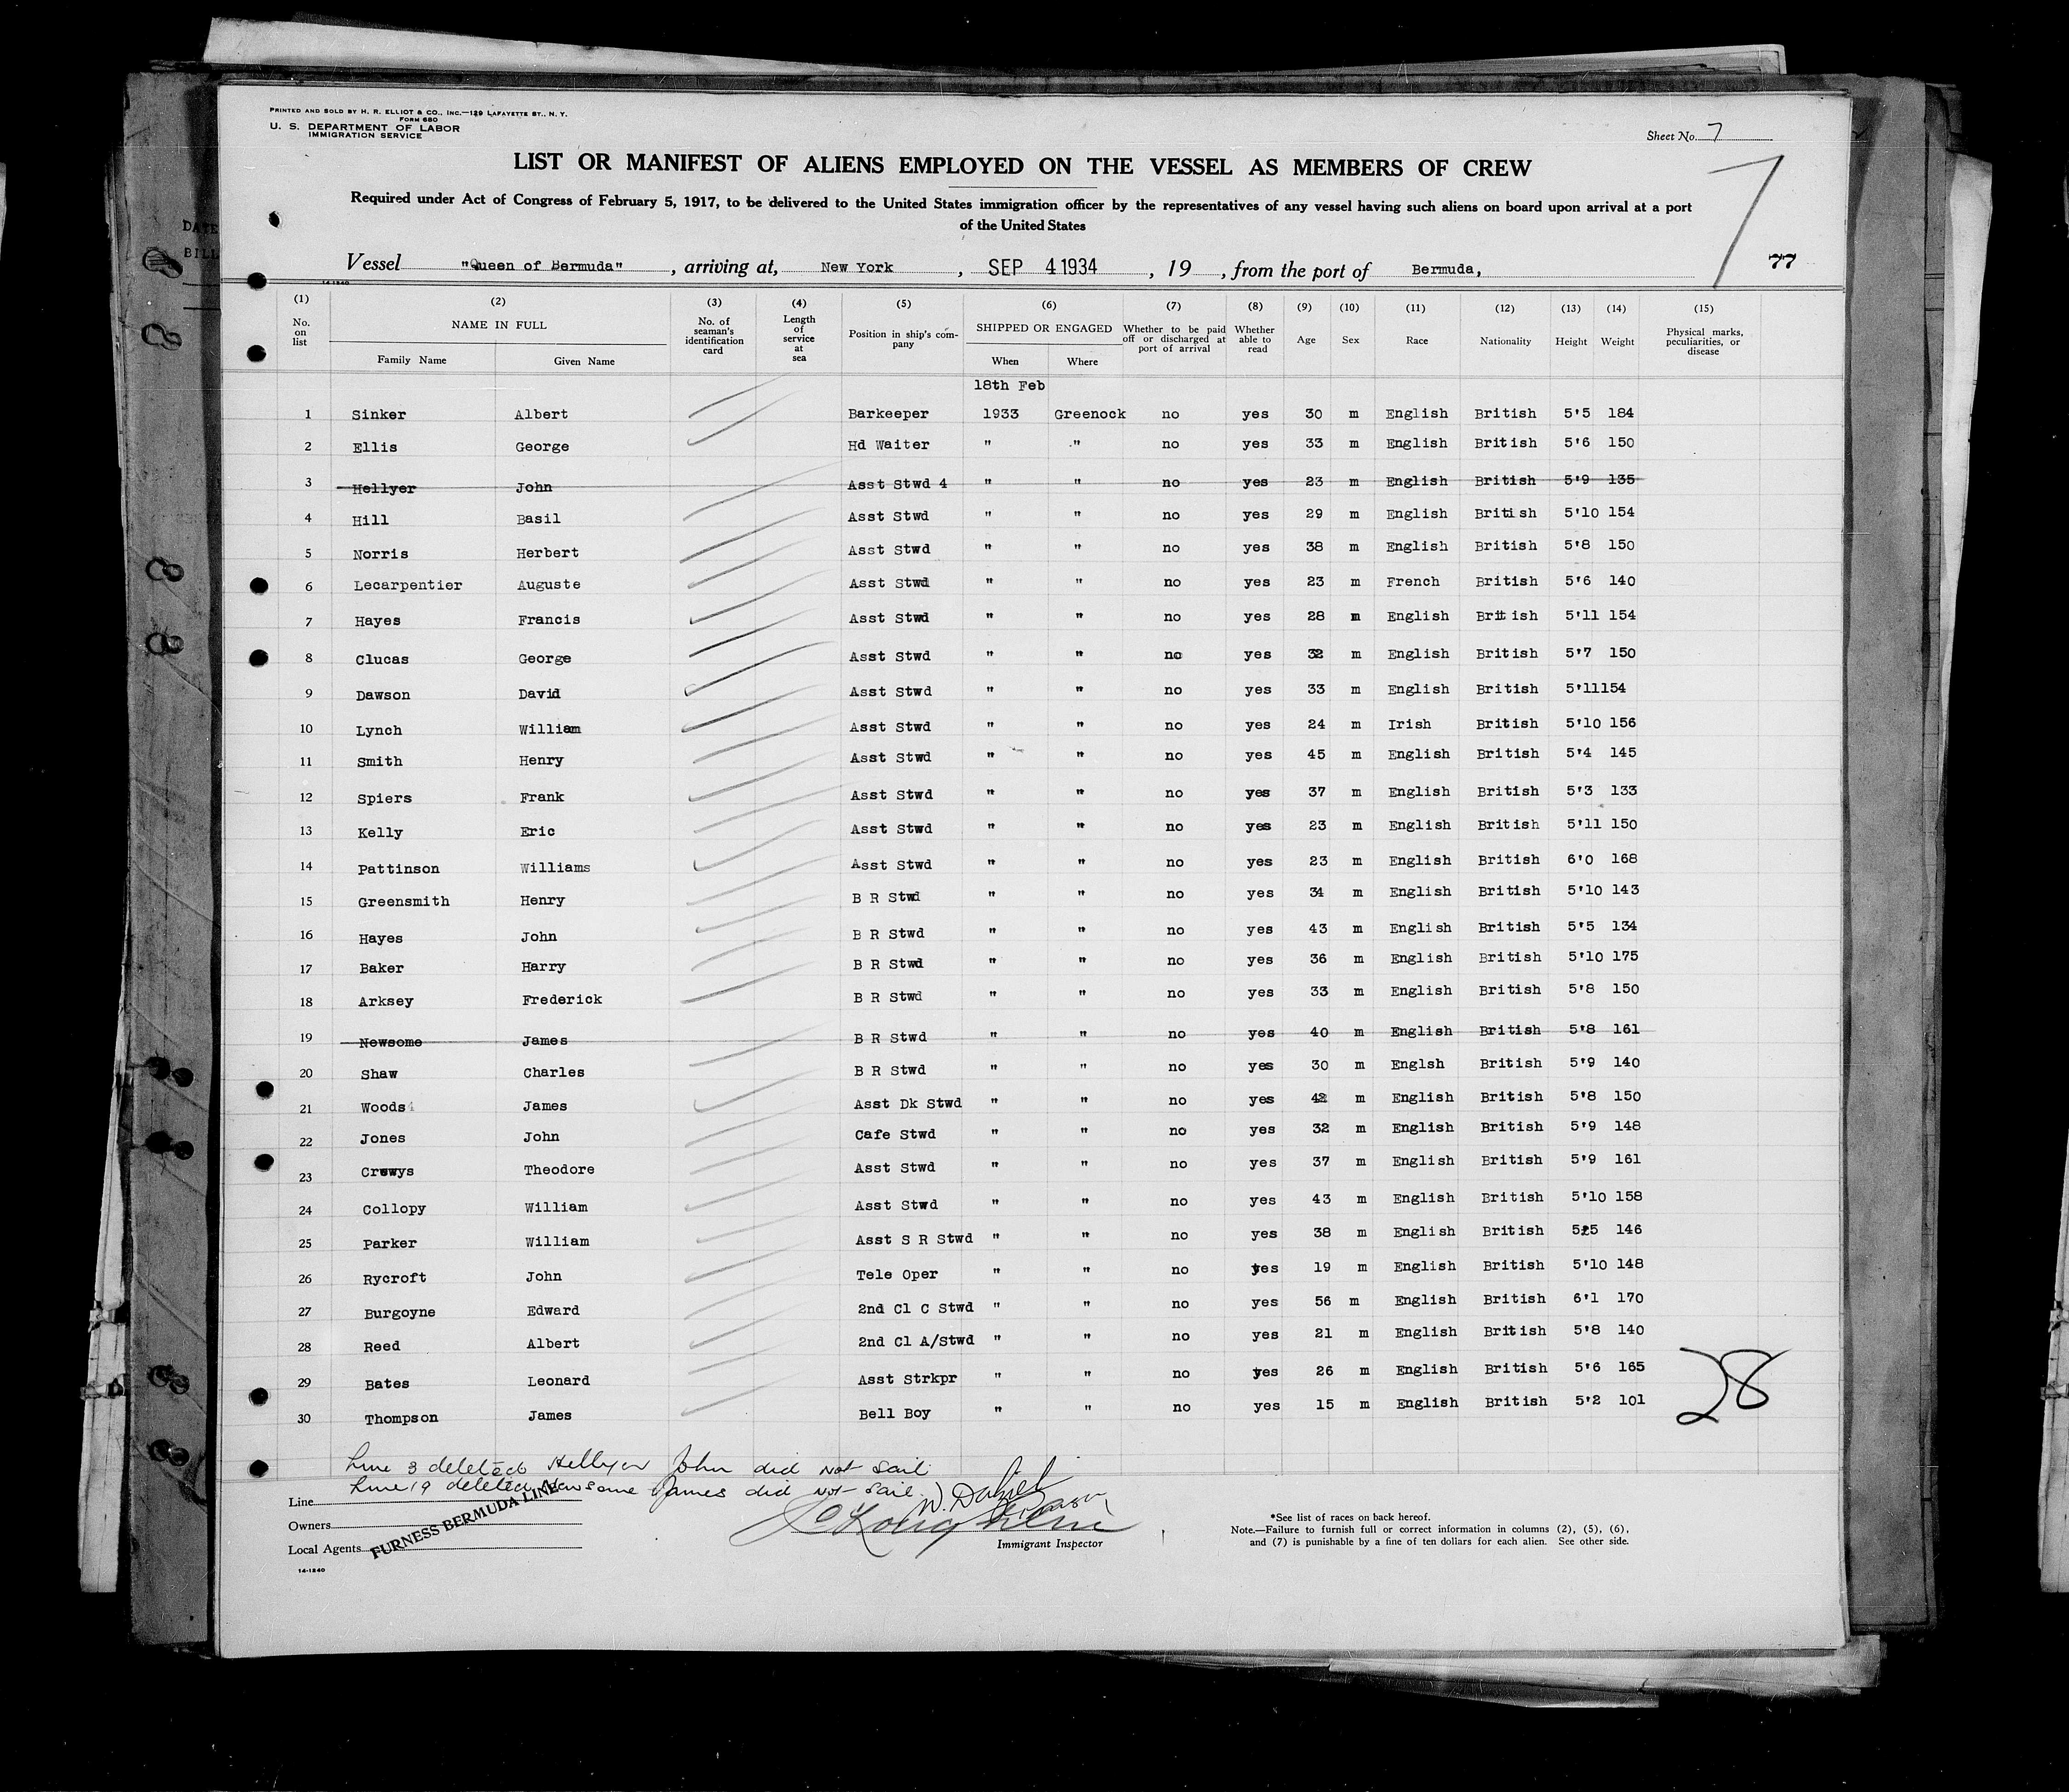 PRINTED AND SOLD BY H. R. ELLIOT & CO., INC.—129 LAFAYETTE ST., N. Y.
FORM 680
U. S. DEPARTMENT OF LABOR
IMMIGRATION SERVICE
Sheet No. 7
LIST OR MANIFEST OF ALIENS EMPLOYED ON THE VESSEL AS MEMBERS OF CREW
7
Required under Act of Congress of February 5, 1917, to be delivered to the United States immigration officer by the representatives of any vessel having such aliens on board upon arrival at a port
of the United States
DATE
BILL
Vessel "Queen of Bermuda", arriving at, New York, SEP 4 1934, 19, from the port of Bermuda,
77
14-1240
(1) (2) (3) (4) (5) (6) (7) (8) (9) (10) (11) (12) (13) (14) (15)
No. on list NAME IN FULL Family Name Given Name No. of seaman's identification card Length of service at sea Position in ship's company SHIPPED OR ENGAGED When Where Whether to be paid off or discharged at port of arrival Whether able to read Age Sex Race Nationality Height Weight Physical marks, peculiarities, or disease
18th Feb
1 Sinker Albert Barkeeper 1933 Greenock no yes 30 m English British 5'5 184
2 Ellis George Hd Waiter " " no yes 33 m English British 5'6 150
3 Hellyer John Asst Stwd 4 " " no yes 23 m English British 5'9 135
4 Hill Basil Asst Stwd " " no yes 29 m English British 5'10 154
5 Norris Herbert Asst Stwd " " no yes 38 m English British 5'8 150
6 Lecarpentier Auguste Asst Stwd " " no yes 23 m French British 5'6 140
7 Hayes Francis Asst Stwd " " no yes 28 m English British 5'11 154
8 Clucas George Asst Stwd " " no yes 32 m English British 5'7 150
9 Dawson David Asst Stwd " " no yes 33 m English British 5'11154
10 Lynch William Asst Stwd " " no yes 24 m Irish British 5'10 156
11 Smith Henry Asst Stwd " " no yes 45 m English British 5'4 145
12 Spiers Frank Asst Stwd " " no yes 37 m English British 5'3 133
13 Kelly Eric Asst Stwd " " no yes 23 m English British 5'11 150
14 Pattinson Williams Asst Stwd " " no yes 23 m English British 6'0 168
15 Greensmith Henry B R Stwd " " no yes 34 m English British 5'10 143
16 Hayes John B R Stwd " " no yes 43 m English British 5'5 134
17 Baker Harry B R Stwd " " no yes 36 m English British 5'10 175
18 Arksey Frederick B R Stwd " " no yes 33 m English British 5'8 150
19 Newsome James B R Stwd " " no yes 40 m English British 5'8 161
20 Shaw Charles B R Stwd " " no yes 30 m Englsh British 5'9 140
21 Woods James Asst Dk Stwd " " no yes 42 m English British 5'8 150
22 Jones John Cafe Stwd " " no yes 32 m English British 5'9 148
23 Crewys Theodore Asst Stwd " " no yes 37 m English British 5'9 161
24 Collopy William Asst Stwd " " no yes 43 m English British 5'10 158
25 Parker William Asst S R Stwd " " no yes 38 m English British 5'5 146
26 Rycroft John Tele Oper " " no yes 19 m English British 5'10 148
27 Burgoyne Edward 2nd Cl C Stwd " " no yes 56 m English British 6'1 170
28 Reed Albert 2nd Cl A/Stwd " " no yes 21 m English British 5'8 140
29 Bates Leonard Asst Strkpr " " no yes 26 m English British 5'6 165
30 Thompson James Bell Boy " " no yes 15 m English British 5'2 101
28
Line 3 deleted Hellyer John did not sail
Line 19 deleted Newsome James did not sail.
Line
Owners
Local Agents FURNESS BERMUDA LINE
W. Daniel
Immigrant Inspector
*See list of races on back hereof.
Note.—Failure to furnish full or correct information in columns (2), (5), (6),
and (7) is punishable by a fine of ten dollars for each alien. See other side.
14-1240